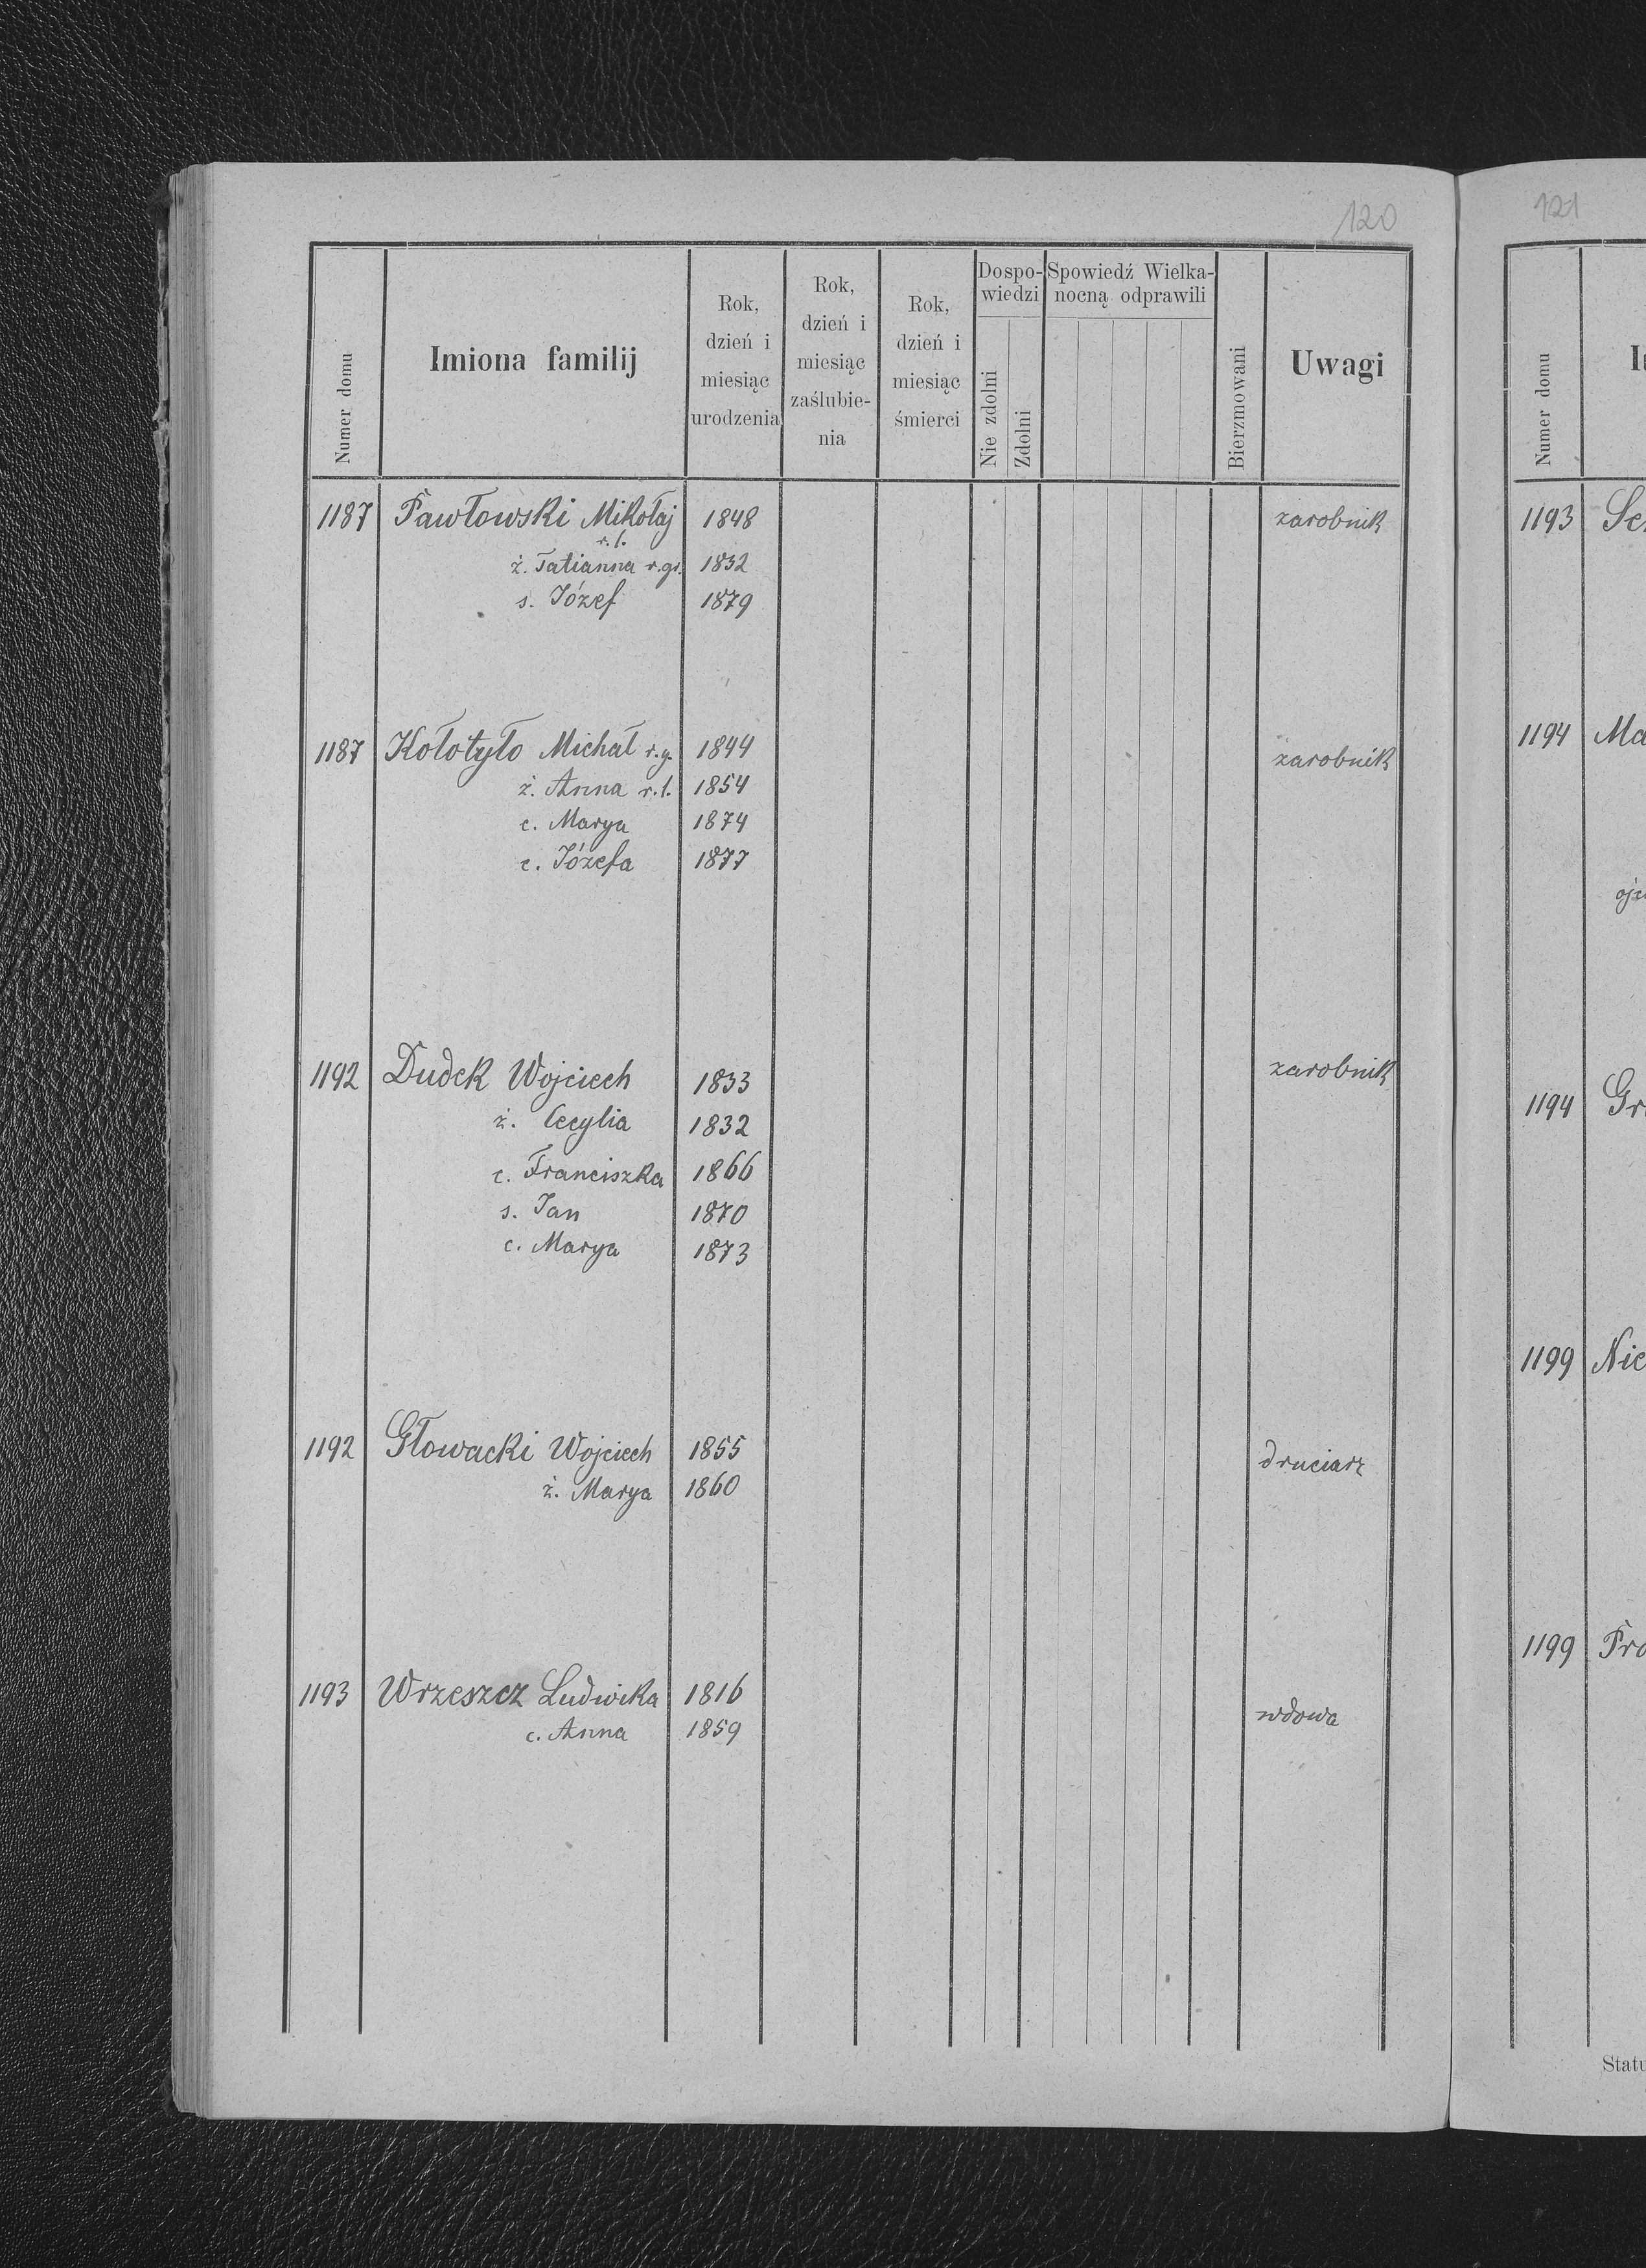 120
Numer domu
Imiona familij
Rok, dzień i miesiąc urodzenia
Rok, dzień i miesiąc zaślubie-nia
Rok, dzień i miesiąc śmierci
Dospo-wiedzi
Nie zdolni
Zdolni
Spowiedź Wielka-nocną odprawili
Bierzmowani
Uwagi
1187 Pawłowski Mikołaj 1848 zarobnik
r. l.
ż. Tatianna r. gr. 1832
s. Józef 1879
1187 Kołotyło Michał r. g. 1844 zarobnik
ż. Anna r. l. 1854
c. Marya 1874
c. Józefa 1877
1192 Dudek Wojciech 1833 zarobnik
ż. Cecylia 1832
c. Franciszka 1866
s. Jan 1870
c. Marya 1873
1192 Głowacki Wojciech 1855 druciarz
ż. Marya 1860
1193 Wrzeszcz Ludwika 1816 wdowa
c. Anna 1859
121
Numer domu
1193
1194 Ma
1194 Gr
1199 Nie
1199
Statu